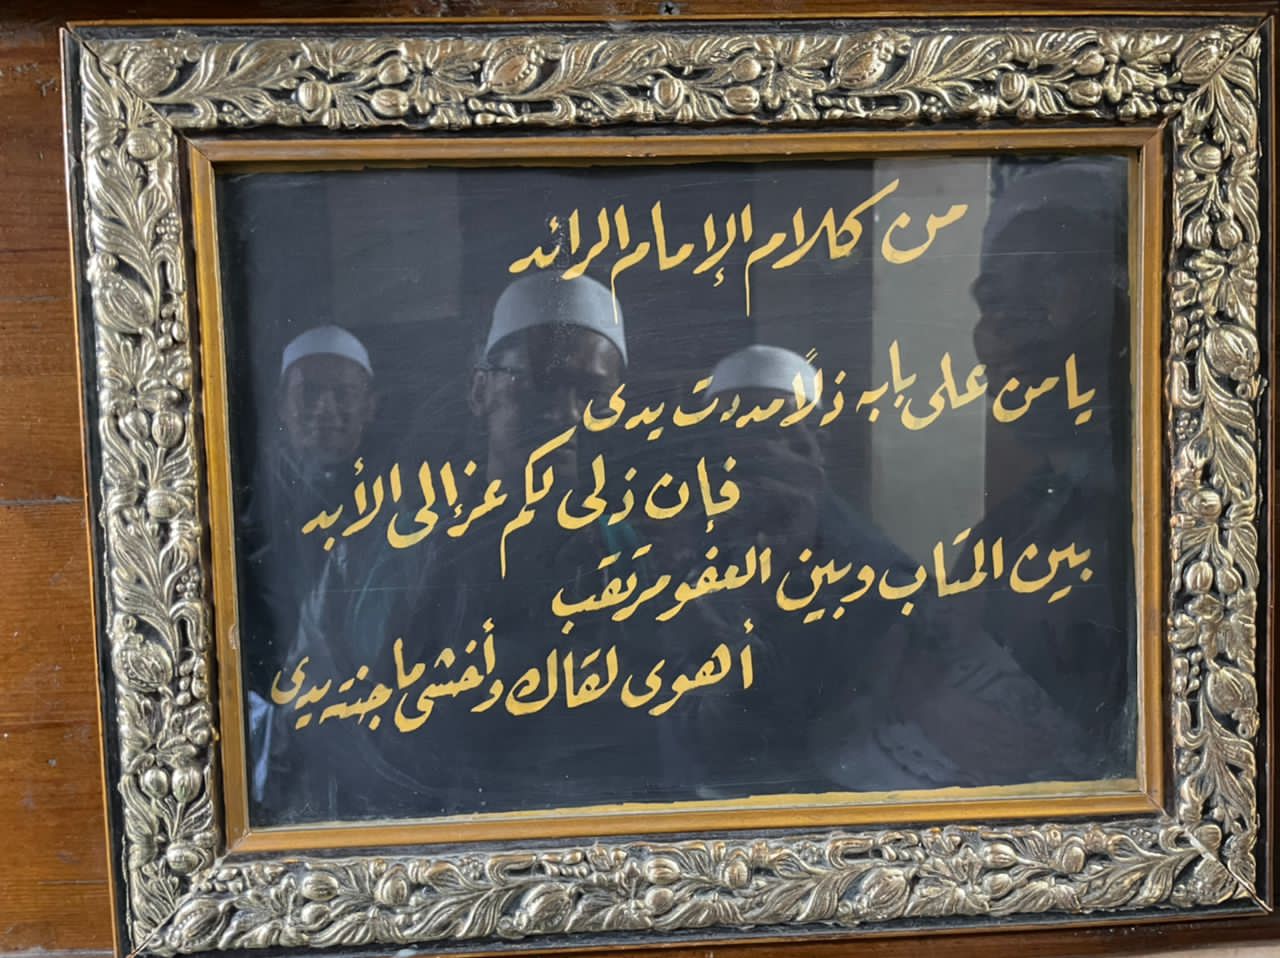 من كلام الإمام الرائد
يا من على بابه ذلاً مددت يدى
فإن ذلى لكم عز إلى الأبد
بين المتاب وبين العفو مرتقب
أهوى لقاك وأخشى ما جنته يدى